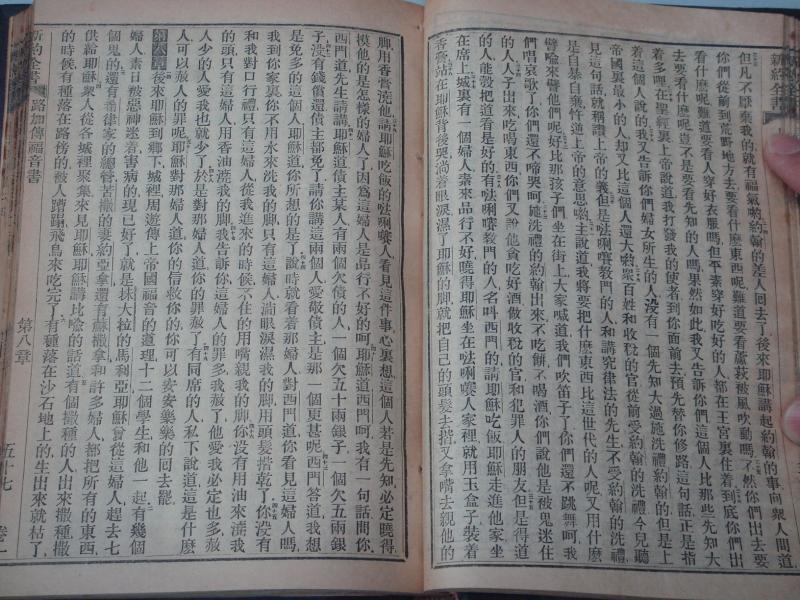 新約全書
但凡不厭棄我的就有福氣喲約翰的差人回去了後來耶穌講起約翰的事向眾人問道
你們從前到荒野地方去要看什麼東西呢難道要看蘆萩被風吹動嗎不然你們出去要
看什麼呢難道要看人穿好衣服嗎但平素穿好吃好的人都在王宮裏住着到底你們出
去要看什麼呢豈不是要看先知的人嗎果然如此我又告訴你們這個人比那些先知大
着多哩在聖經裏上帝說道我打發我的使者到你面前去預先替你修路這句話正是指
着這個人說的我又告訴你們婦女所生的人沒有一個先知大過施洗禮約翰的但是上
帝國裏最小的人却又比這個人還大喲眾百姓和收稅的官從前受約翰的洗禮今兒聽
見這句話就稱讚上帝的義但是㗶唎嘍教門的人和講究律法的先生不受約翰的洗禮
是自暴自棄忤逆上帝的意思喲主說道我將要把什麼東西比這世代的人呢又用什麼
譬喻來譬他們呢好比那孩子們坐在街上大家喊道我們吹笛子了你們還不跳舞呵我
們唱哀歌了你們還不啼哭呵施洗禮的約翰出來不吃餅不喝酒你們說他是被鬼迷住
的人人子出來吃喝東西你們又說他貪吃好酒做收稅的官和犯罪人的朋友但是得道
的人能彀把道看是好的有㗶唎嘍教門的人名呌西門的請耶穌吃飯耶穌走進他家坐
在席上城裏有一個婦人素來品行不好曉得耶穌坐在㗶唎嘍人家裡就用玉盒子裝着
香膏站在耶穌背後哭淌着眼淚濕了耶穌的脚就把自己的頭髮去揩又拿嘴去親他的
脚用香膏澆他請耶穌吃飯的㗶唎嘍人看見這件事心裏想這個人若是先知必定曉得
摸他的是怎樣的婦人了因爲這婦人是品行不好的呵耶穌道西門呵我有一句話問你
西門道先生請講耶穌道債主某人有兩個欠債的人一個欠五十兩銀子一個欠五兩銀
子沒有錢償還債主都免了請你講這兩個人愛敬債主是那一個更甚呢西門答道我想
是免多的這個人耶穌道你所想的是了說時就看着那婦人對西門道你看見這婦人嗎
我到你家裏你不用水來洗我的脚只有這婦人淌眼淚濕我的脚用頭髮揩乾了你沒有
和我對口行禮只有這婦人從我進來的時候不住的用嘴親我的脚你沒有用油來澆我
的頭只有這婦人用香油澆我的脚我告訴你這婦人的罪多我赦了他愛我必定也多赦
人少的人愛我也就少了於是對那婦人道你的罪赦了有同席的人私下說道這是什麼
人可以赦人的罪呢耶穌對那婦人道你的信救你的你可以安安樂樂的回去罷
第八章 後來耶穌到鄉下城裡周遊傳上帝國福音的道理十二個學生和他一起有幾個
婦人素日被惡神迷着害病的現已好了就是抹大拉的馬利亞耶穌曾從這婦人趕去七
個鬼的還有希律家的總管苦撒的妻約亞拿還有蘇撒拿和許多婦人都把所有的東西
供給耶穌眾人從各城裡聚集來見耶穌耶穌講比喻的話道有個撒種的人出來撒種撒
的時候有種落在路傍的被人踏踢飛鳥來吃完了有種落在沙石地上的生出來就枯了
新約全書 路加傳福音書 第八章 五十七 卷一